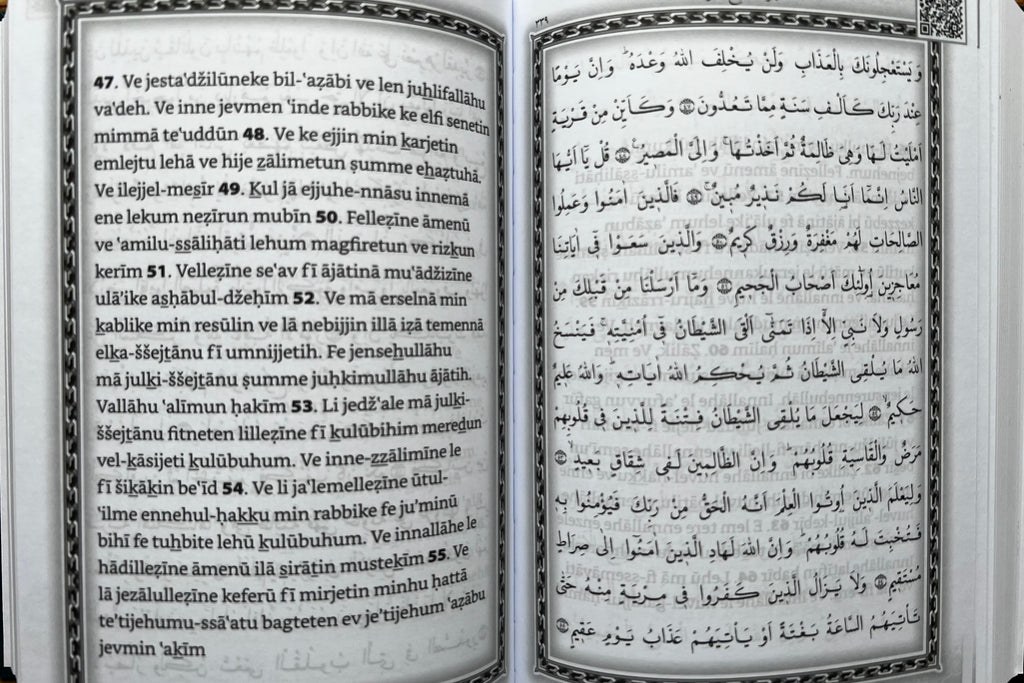 47. Ve jesta'džilūneke bil-'aẕābi ve len juẖlifallāhu
va'deh. Ve inne jevmen 'inde rabbike ke elfi senetin
mimmā te'uddūn 48. Ve ke ejjin min ḵarjetin
emlejtu lehā ve hije ẓālimetun ṣumme eẖaẕtuhā.
Ve ilejjel-meṣīr 49. Ḵul jā ejjuhe-nnāsu innemā
ene lekum neẕīrun mubīn 50. Felleẕīne āmenū
ve 'amilu-ṣṣāliḥāti lehum magfiretun ve rizḵun
kerīm 51. Velleẕīne se'av fī ājātinā mu'ādžizīne
ulā'ike aṣḥābul-džeḥīm 52. Ve mā erselnā min
ḵablike min resūlin ve lā nebijjin illā iẕā temennā
elḵa-ššejṭānu fī umnijjetih. Fe jenseẖullāhu
mā julḵi-ššejṭānu ṣumme juḥkimullāhu ājātih.
Vallāhu 'alīmun ḥakīm 53. Li jedž'ale mā julḵi-
ššejṭānu fitneten lilleẕīne fī ḵulūbihim meredun
vel-ḵāsijeti ḵulūbuhum. Ve inne-ẓẓālimīne le
fī šiḵāḵin be'īd 54. Ve li ja'lemelleẕīne ūtul-
'ilme ennehul-ḥaḵḵu min rabbike fe ju'minū
bihī fe tuẖbite lehū ḵulūbuhum. Ve innallāhe le
hādilleẕīne āmenū ilā ṣirāṭin musteḵīm 55. Ve
lā jezālulleẕīne keferū fī mirjetin minhu ḥattā
te'tijehumu-ssā'atu bagteten ev je'tijehum 'aẕābu
jevmin 'aḵīm
٣٣٩
وَيَسْتَعْجِلُونَكَ بِالْعَذَابِ وَلَنْ يُخْلِفَ اللّٰهُ وَعْدَهُ وَاِنَّ يَوْمًا
عِنْدَ رَبِّكَ كَاَلْفِ سَنَةٍ مِمَّا تَعُدُّونَ ﴿٤٧﴾ وَكَاَيِّنْ مِنْ قَرْيَةٍ
اَمْلَيْتُ لَهَا وَهِيَ ظَالِمَةٌ ثُمَّ اَخَذْتُهَا وَاِلَيَّ الْمَصِيرُ ﴿٤٨﴾ قُلْ يَا اَيُّهَا
النَّاسُ اِنَّمَا اَنَا لَكُمْ نَذِيرٌ مُبِينٌ ﴿٤٩﴾ فَالَّذِينَ اٰمَنُوا وَعَمِلُوا
الصَّالِحَاتِ لَهُمْ مَغْفِرَةٌ وَرِزْقٌ كَرِيمٌ ﴿٥٠﴾ وَالَّذِينَ سَعَوْا فِي اٰيَاتِنَا
مُعَاجِزِينَ اُولٰئِكَ اَصْحَابُ الْجَحِيمِ ﴿٥١﴾ وَمَا اَرْسَلْنَا مِنْ قَبْلِكَ مِنْ
رَسُولٍ وَلَا نَبِيٍّ اِلَّا اِذَا تَمَنّٰى اَلْقَى الشَّيْطَانُ فِي اُمْنِيَّتِهِ فَيَنْسَخُ
اللّٰهُ مَا يُلْقِي الشَّيْطَانُ ثُمَّ يُحْكِمُ اللّٰهُ اٰيَاتِهِ وَاللّٰهُ عَلِيمٌ
حَكِيمٌ ﴿٥٢﴾ لِيَجْعَلَ مَا يُلْقِي الشَّيْطَانُ فِتْنَةً لِلَّذِينَ فِي قُلُوبِهِمْ
مَرَضٌ وَالْقَاسِيَةِ قُلُوبُهُمْ وَاِنَّ الظَّالِمِينَ لَفِي شِقَاقٍ بَعِيدٍ ﴿٥٣﴾
وَلِيَعْلَمَ الَّذِينَ اُوتُوا الْعِلْمَ اَنَّهُ الْحَقُّ مِنْ رَبِّكَ فَيُؤْمِنُوا بِهِ
فَتُخْبِتَ لَهُ قُلُوبُهُمْ وَاِنَّ اللّٰهَ لَهَادِ الَّذِينَ اٰمَنُوا اِلٰى صِرَاطٍ
مُسْتَقِيمٍ ﴿٥٤﴾ وَلَا يَزَالُ الَّذِينَ كَفَرُوا فِي مِرْيَةٍ مِنْهُ حَتّٰى
تَأْتِيَهُمُ السَّاعَةُ بَغْتَةً اَوْ يَأْتِيَهُمْ عَذَابُ يَوْمٍ عَقِيمٍ ﴿٥٥﴾